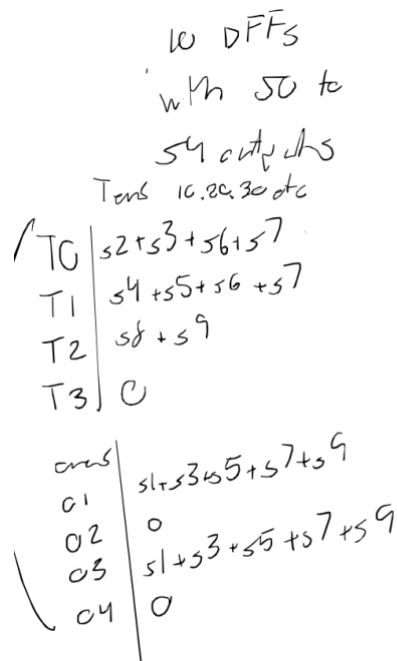 10 DFFs
with 50 to
54 outputs
Tens 10.20.30 etc
T0 s2+s3+s6+s7
T1 s4+s5+s6+s7
T2 s8+s9
T3 0
ones
01 s1+s3+s5+s7+s9
02 0
03 s1+s3+s5+s7+s9
04 0